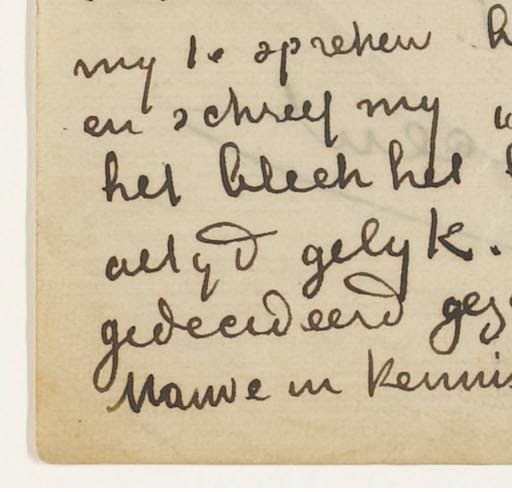 my te spreken
en schreef my
het bleek het
altyd gelyk.
gedecideerd
Mauve in kennis